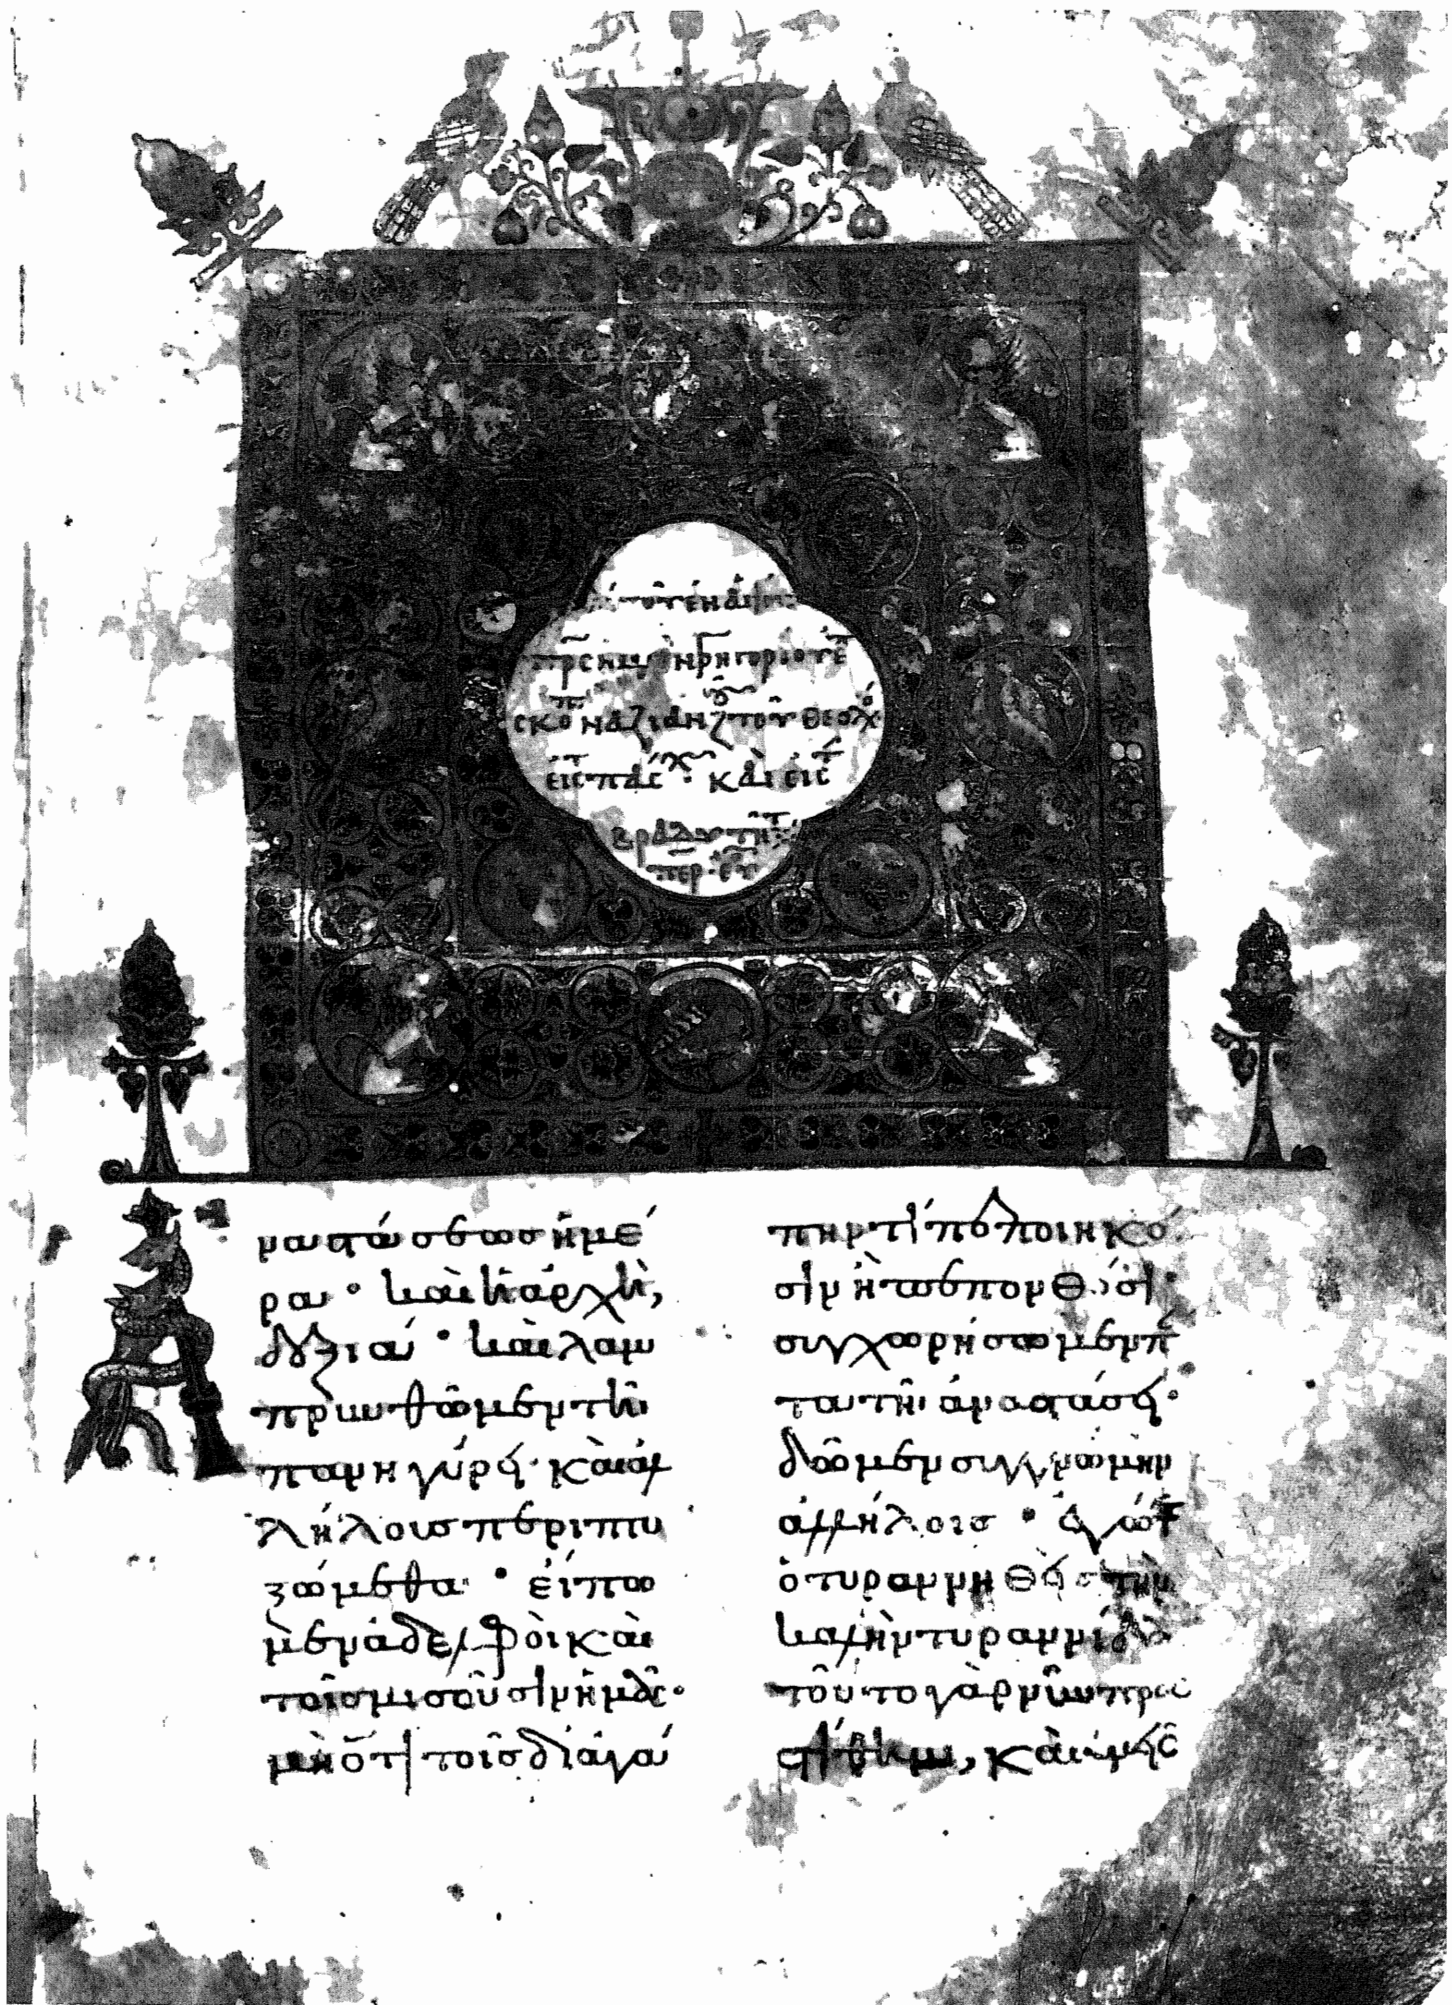 τοῦ ἐν ἁγί
πρς ημ Γρηγορίου ἐπ
σκο ναζιανζ τοῦ θεολο
εἰς τ πάσχ · καὶ εἰς τ
βραδυτητ
Αναστάσεως ἡμέ
ρα · καὶ ἡ ἀρχὴ,
δεξιά · καὶ λαμ
πρυνθῶμεν τῆ
πανηγύρει · καὶ ἀλ
λήλους περιπτυ
ξώμεθα · εἴπω
μεν ἀδελφοὶ καὶ
τοῖς μισοῦσιν ἡμᾶς ·
μὴ ὅτι τοῖς δι ἀγά
πην τὶ πεποιηκό
σιν ἢ πεπονθόσι ·
συγχωρήσωμεν πά
τα τῆ ἀναστάσει ·
δῶμεν συγγνώμην
ἀλλήλοις · ἐγώ τε
ὁ τυραννηθεὶς τὴν
καλὴν τυραννίδα
τοῦτο γὰρ νῦν προσ
τίθημι, καὶ ὑμεῖς